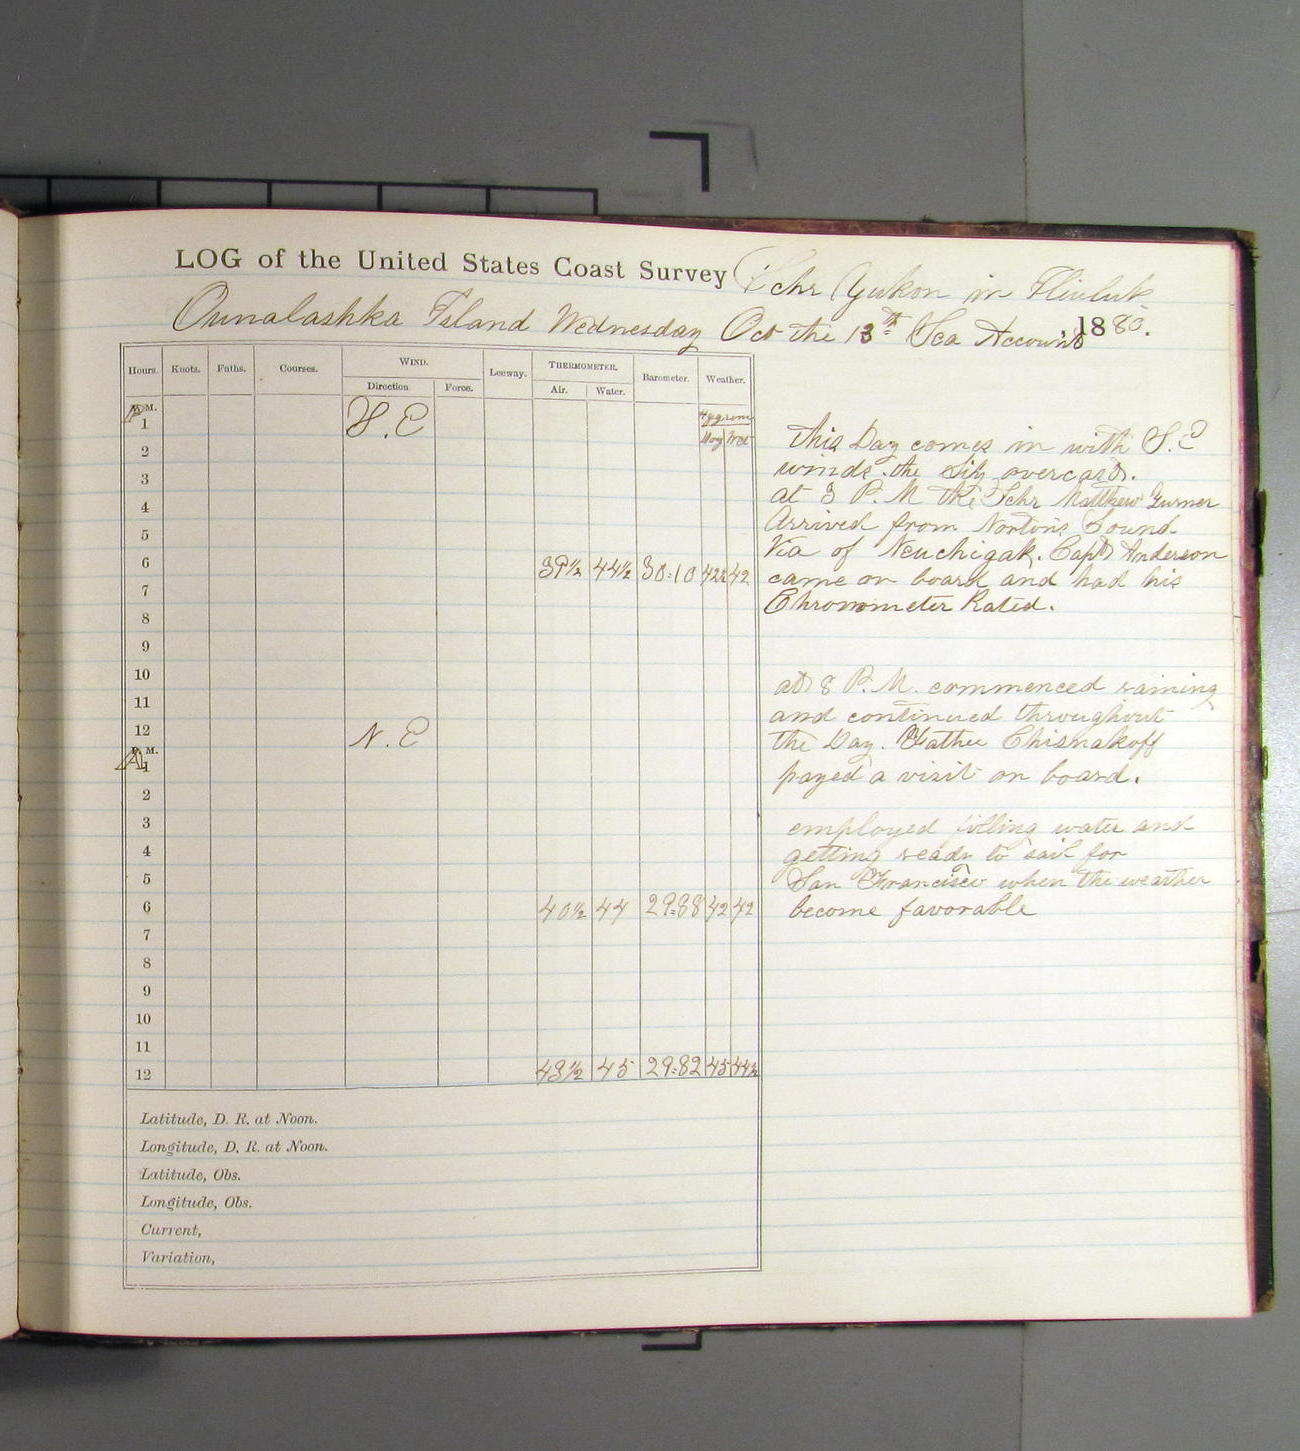 LOG of the United States Coast Survey Schr Yukon in Iliuluk
Ounalashka Island Wednesday Oct the 13th Sea Account, 1880.
Hours. Knots. Faths. Courses. WIND. Leeway. THERMOMETER. Barometer. Weather.
Direction Force. Air. Water.
P M. Hygrom
1 S. E
2 Dry Wet
3
4
5
6 39½ 44½ 30.10 42½ 42
7
8
9
10
11
12 N. E
A M.
1
2
3
4
5
6 40½ 44 29.88 42 42
7
8
9
10
11
12 43½ 45 29.82 45 44½
Latitude, D. R. at Noon.
Longitude, D. R. at Noon.
Latitude, Obs.
Longitude, Obs.
Current,
Variation,
this Day comes in with S. E
winds. the sky overcast.
at 3 P. M the Schr Matthew Turner
Arrived from Nortons Sound
Via of Neuchigak. Capt Anderson
came on board and had his
Chronometer Rated.
at 8 P. M. commenced raining
and continued throughout
the Day. Father Chisnakoff
payed a visit on board.
employed filling water and
getting ready to sail for
San Francisco when the weather
become favorable